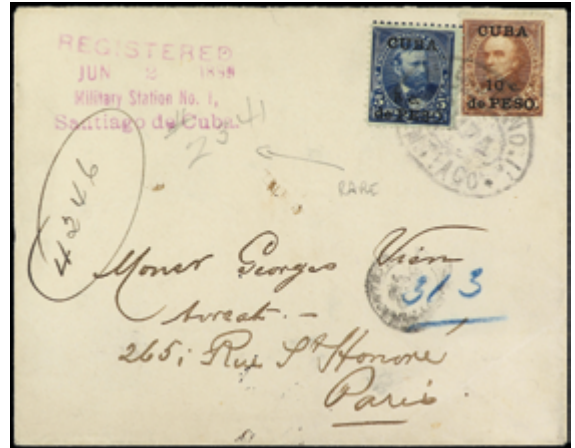 REGISTERED
JUN 2 1899
Military Station No. 1,
Santiago de Cuba.
CUBA
5
de PESO
CUBA
10 c.
de PESO
NO. 1
2341
RARE
4246
Georges Vian
313
Avocat. -
265, Rue St Honoré
Paris